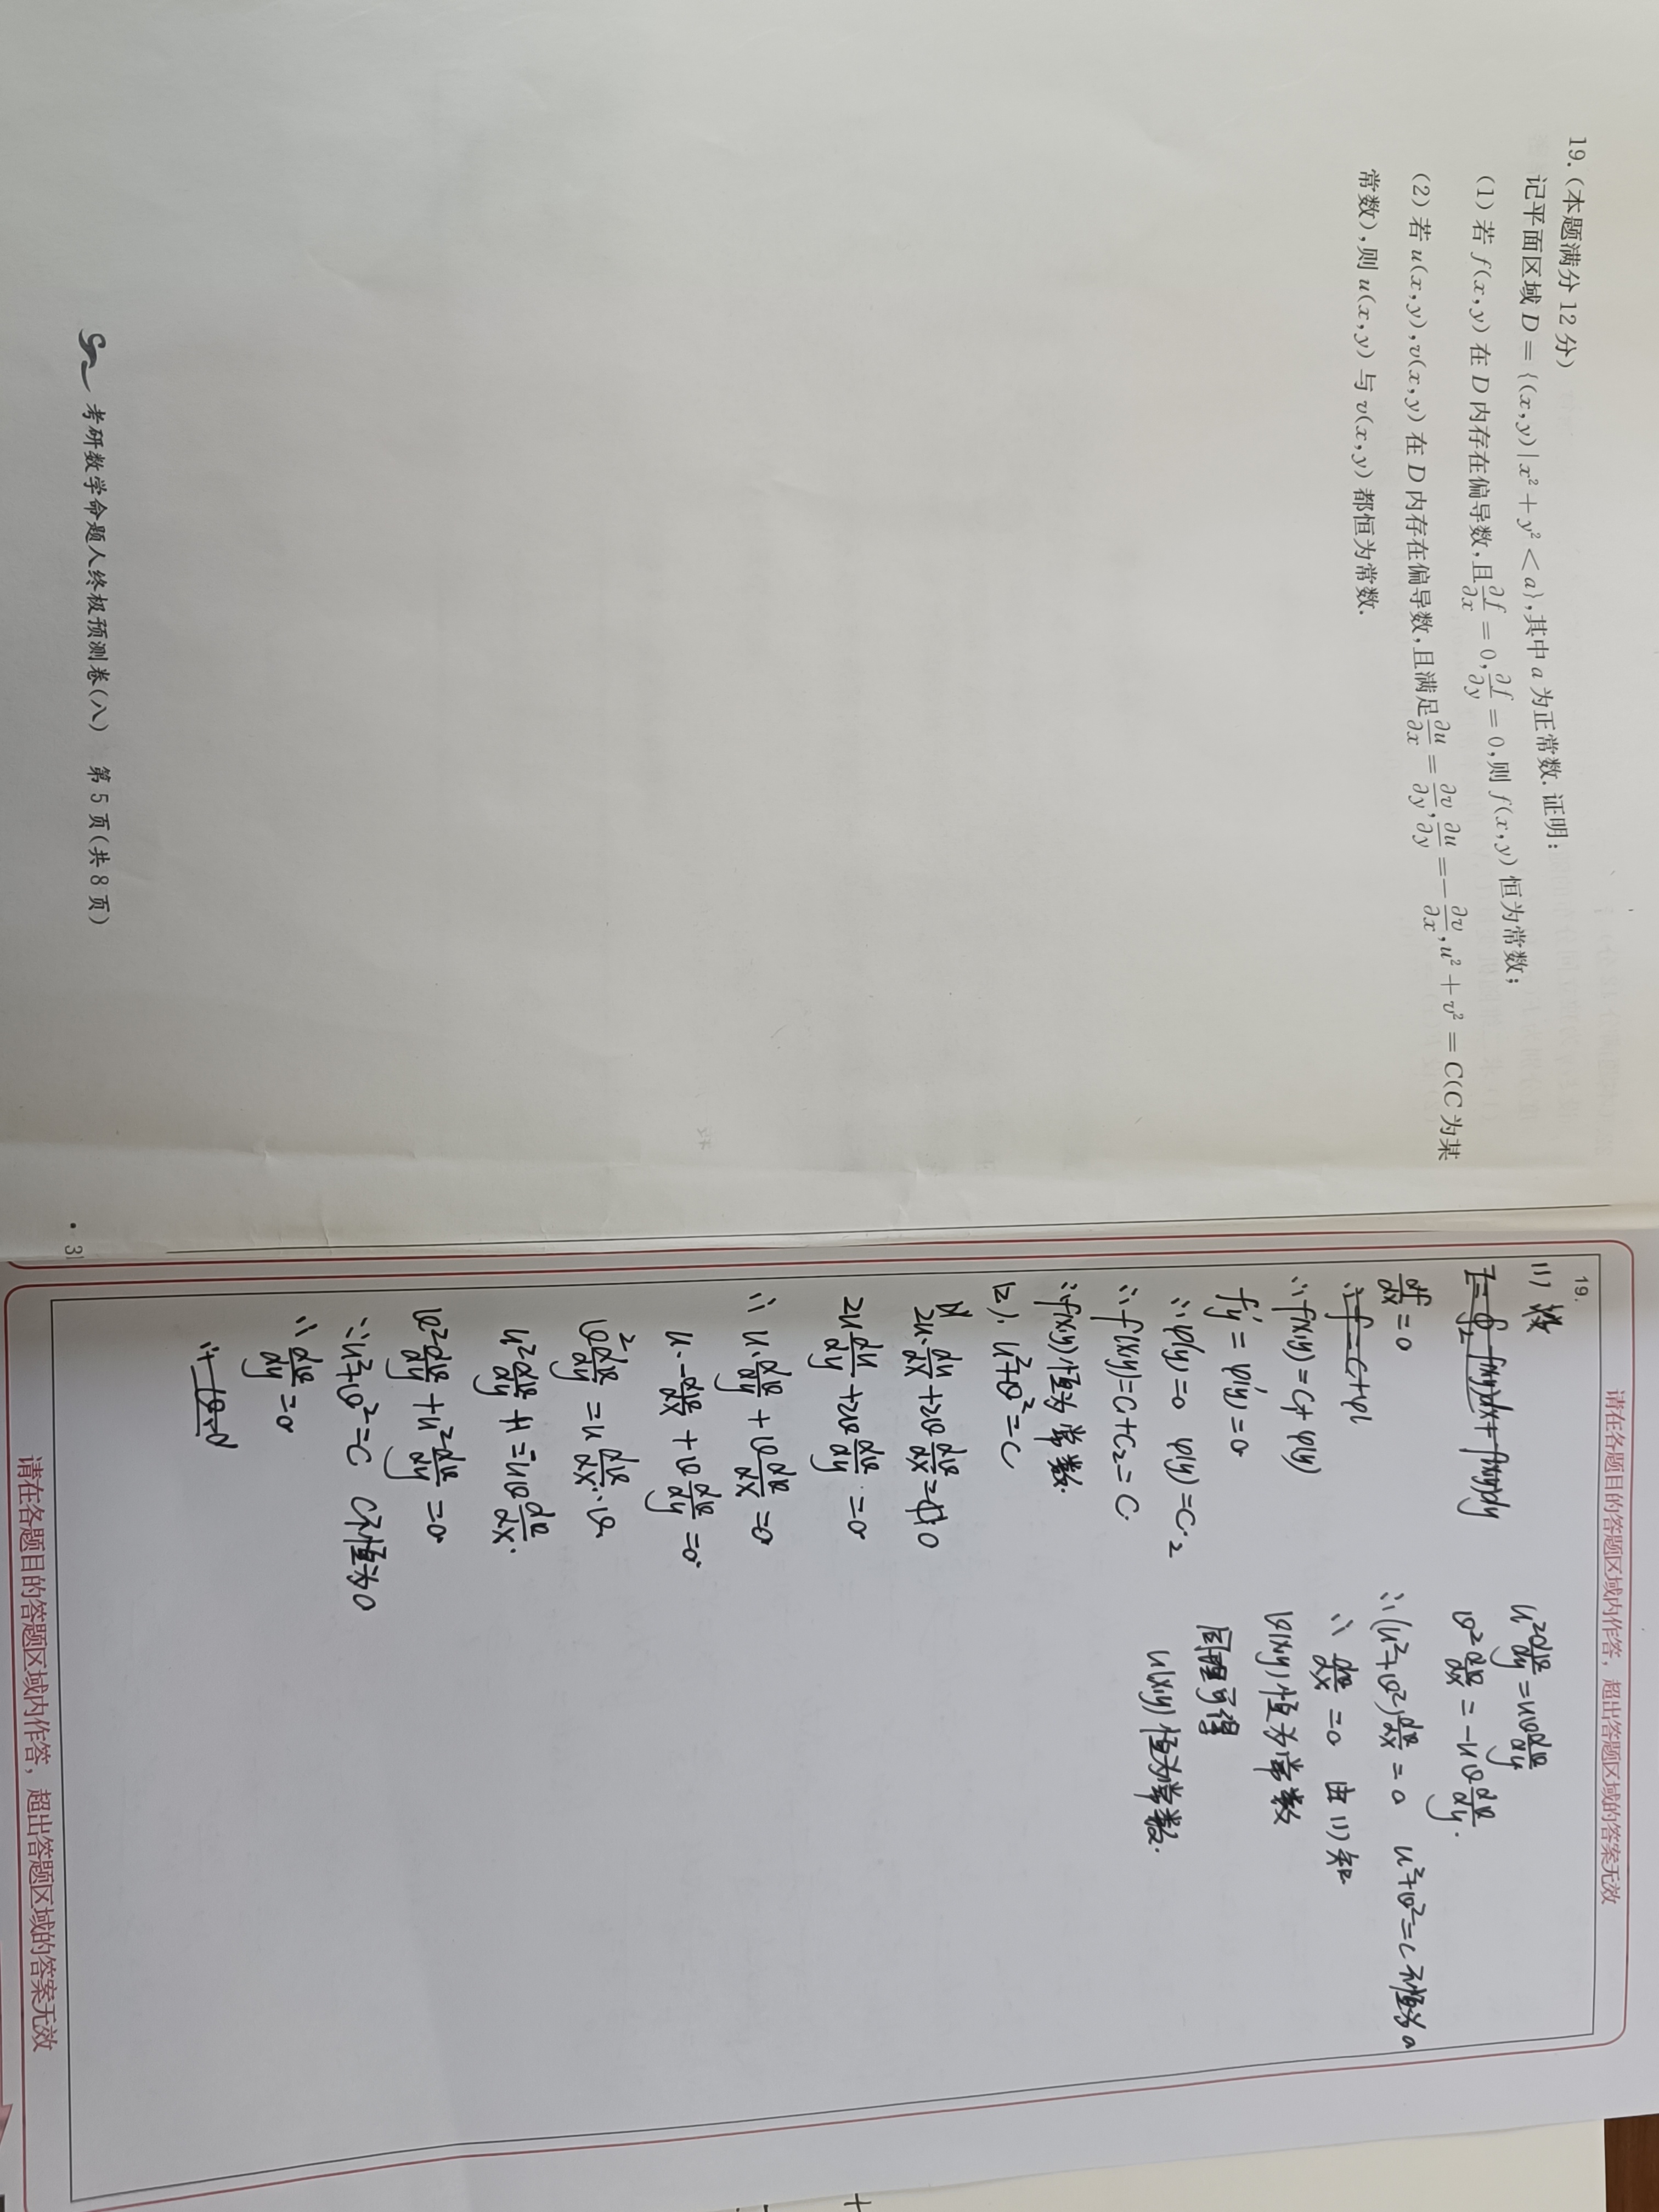 19.(本题满分 12 分)
记平面区域 D = {(x,y)|x² + y² < a},其中 a 为正常数. 证明:
(1) 若 f(x,y) 在 D 内存在偏导数,且∂f/∂x = 0,∂f/∂y = 0,则 f(x,y) 恒为常数;
(2) 若 u(x,y),v(x,y) 在 D 内存在偏导数,且满足∂u/∂x = ∂v/∂y,∂u/∂y = −∂v/∂x,u² + v² = C(C 为某
常数),则 u(x,y) 与 v(x,y) 都恒为常数.
考研数学命题人终极预测卷(八) 第 5 页(共 8 页)
· 3
请在各题目的答题区域内作答，超出答题区域的答案无效
19.
(1)
∂f/∂x = 0
∴ f(x,y) = C + φ(y)
f'y = φ'(y) = 0
∴ φ'(y) = 0 φ(y) = C₂
∴ f(x,y) = C + C₂ = C.
∴ f(x,y)恒为常数.
(2). u²+v² = C
+2v ∂v/∂x = 0
2u ∂u/∂y + 2v ∂v/∂y = 0
∴ u·∂v/∂y + v ∂v/∂x = 0
u·−∂v/∂x + v ∂v/∂y = 0.
v² ∂v/∂y = u ∂v/∂x · v.
u² ∂v/∂y = −uv ∂v/∂x.
v² ∂v/∂y + u² ∂v/∂y = 0.
∵ u²+v² = C C不恒为0
∴ ∂v/∂y = 0
u² ∂v/∂x = uv ∂v/∂y
v² ∂v/∂x = −uv ∂v/∂y.
∴ (u²+v²) ∂v/∂x = 0 u²+v² = C 不恒为0
∴ ∂v/∂x = 0 由(1)知
v(x,y)恒为常数
同理可得
u(x,y)恒为常数.
请在各题目的答题区域内作答，超出答题区域的答案无效